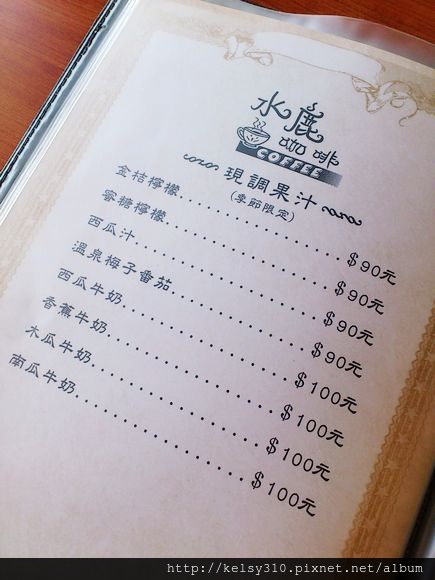 水鹿
咖啡
COFFEE
現調果汁
(季節限定)
金桔檸檬..................$90元
蜜糖檸檬..................$90元
西瓜汁..................$90元
溫泉梅子番茄..................$90元
西瓜牛奶..................$100元
香蕉牛奶..................$100元
木瓜牛奶..................$100元
南瓜牛奶..................$100元
http://kelsy310.pixnet.net/album